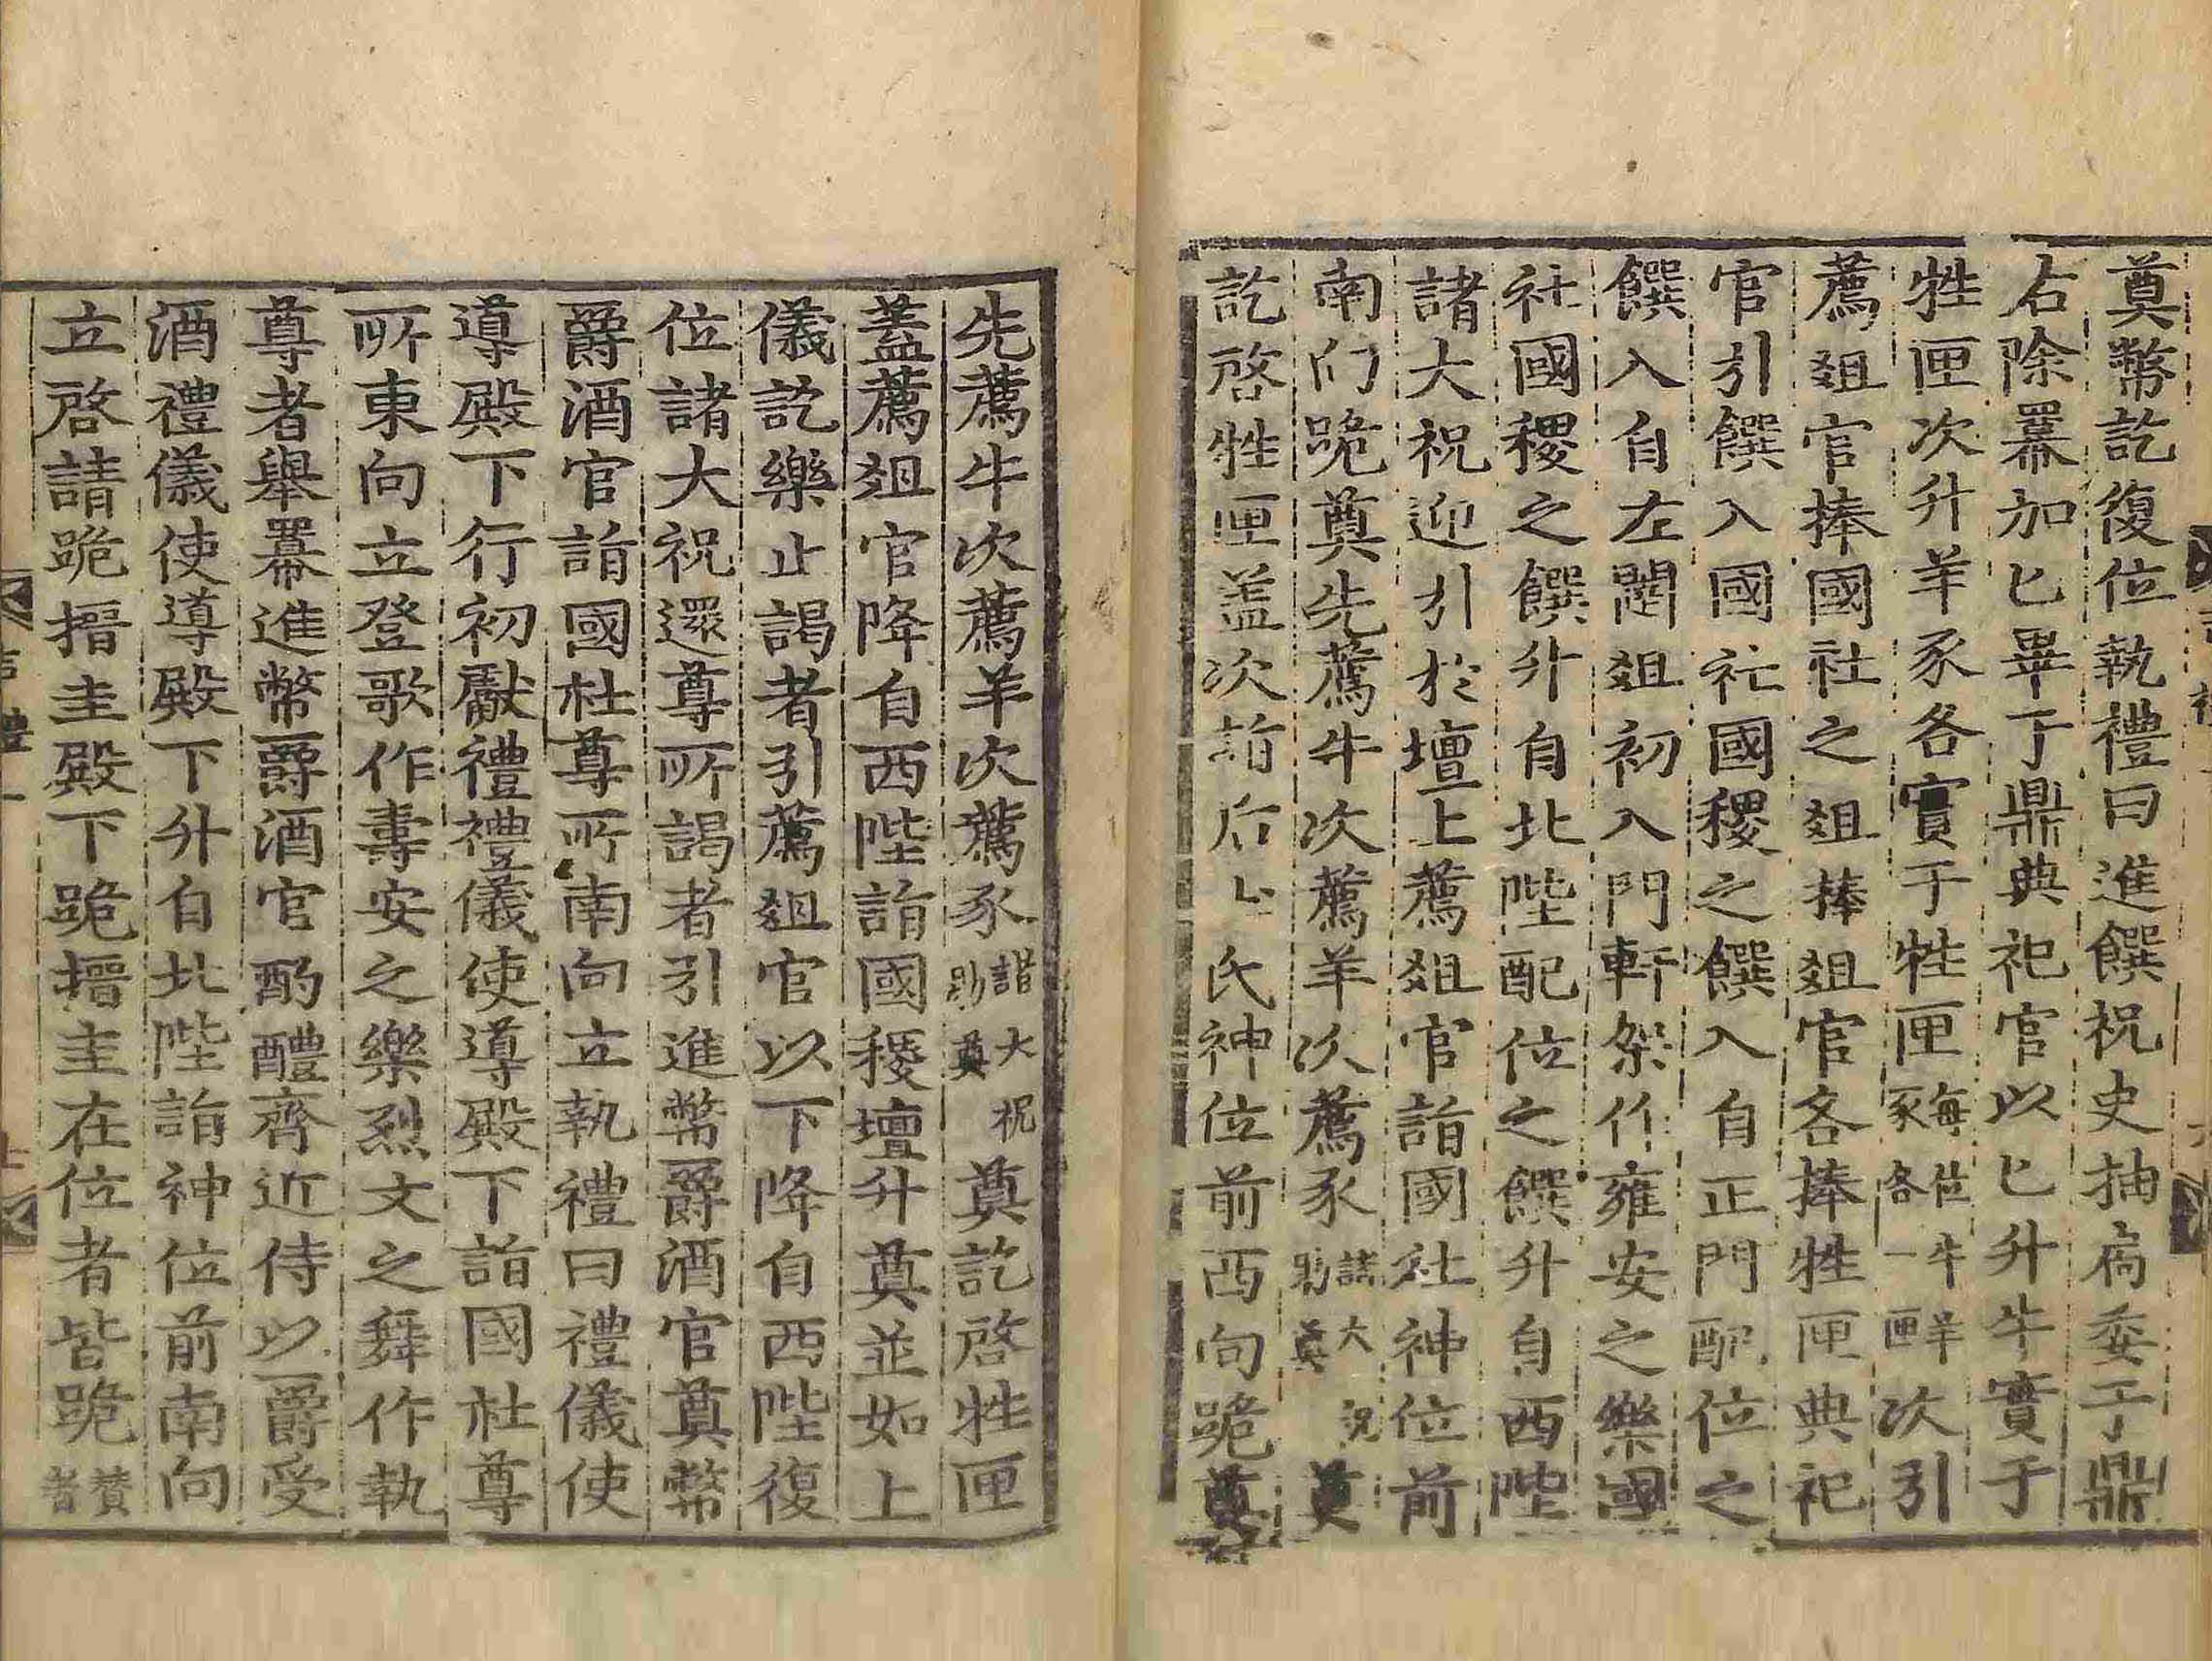 奠幣訖復位執禮曰進饌祝史抽扃委于鼎
右除冪加匕畢于鼎典祀官以匕升牛實于
牲匣次升羊豕各實于牲匣每位牛羊豕各一匣次引
薦俎官捧國社之俎捧俎官各捧牲匣典祀
官引饌入國社國稷之饌入自正門配位之
饌入自左闥俎初入門軒架作雍安之樂國
社國稷之饌升自北陛配位之饌升自西陛
諸大祝迎引於壇上薦俎官詣國社神位前
南向跪奠先薦牛次薦羊次薦豕諸大祝助奠奠
訖啓牲匣盖次詣后土氏神位前西向跪奠
先薦牛次薦羊次薦豕諸大祝助奠奠訖啓牲匣
蓋薦俎官降自西陛詣國稷壇升奠並如上
儀訖樂止謁者引薦俎官以下降自西陛復
位諸大祝還尊所謁者引進幣爵酒官奠幣
爵酒官詣國社尊所南向立執禮曰禮儀使
導殿下行初獻禮禮儀使導殿下詣國社尊
所東向立登歌作壽安之樂烈文之舞作執
尊者舉冪進幣爵酒官酌醴齊近侍以爵受
酒禮儀使導殿下升自北陛詣神位前南向
立啓請跪搢圭殿下跪搢圭在位者皆跪贊者